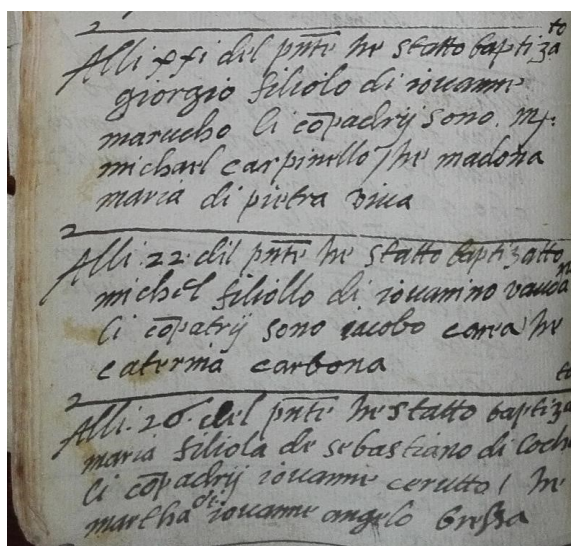 2
Alli xxi del pñte he statto baptiza to
giorgio filiolo di iouanne
marucho li cõpadrij sono. m:
michael carpinello / he madoña
maria di pietra viua
2
Alli. 22. dil pñte he statto baptizatto
michel filiollo di iouanino
li cõpatrij sono iacobo carea he
caterina carbona
2
Alli. 26. del pñte he statto baptiza to
maria filiola de sebastiano di
li cõpadrij iouanne cerutto / he
martha di iouanne angelo bressa